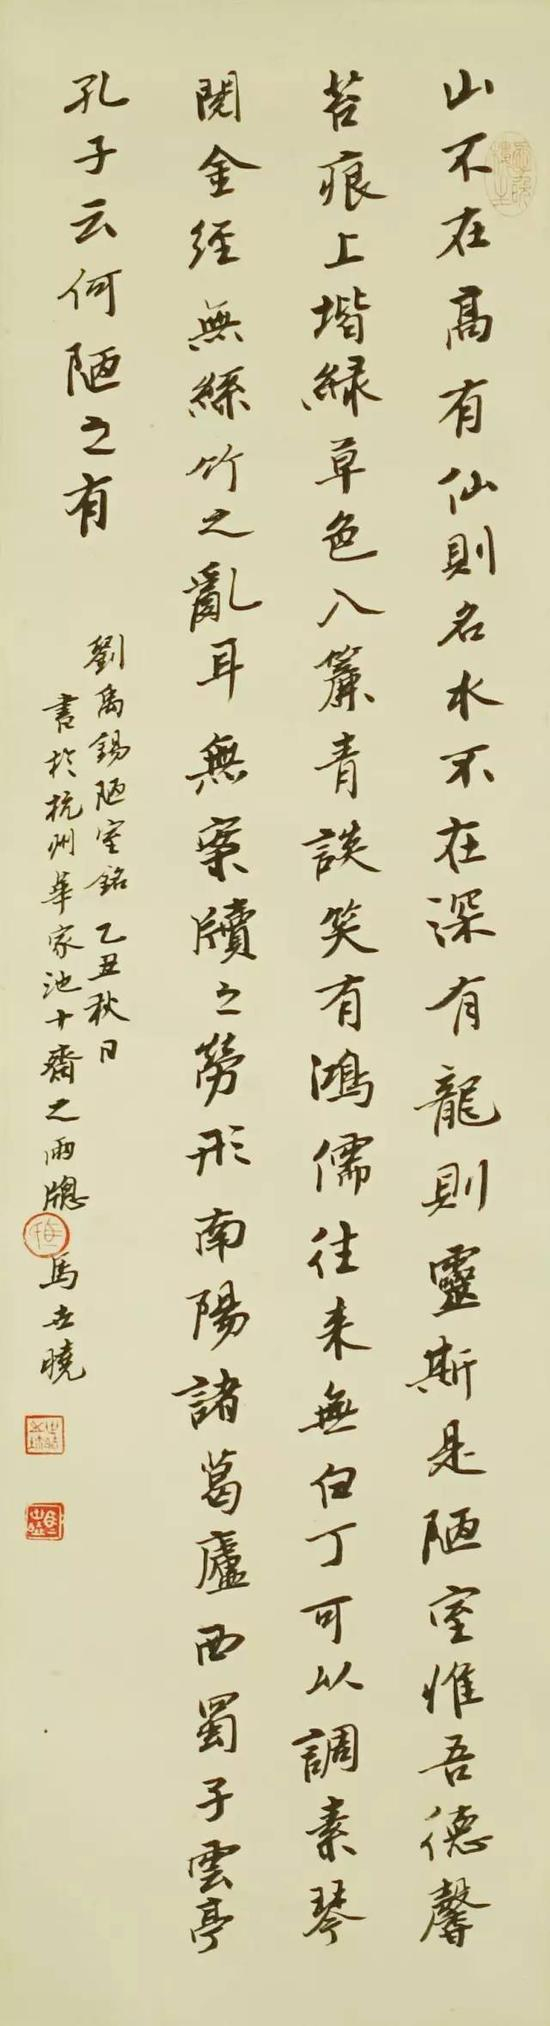 山不在高有仙則名水不在深有龍則靈斯是陋室惟吾德馨
苔痕上堦緑草色入簾青談笑有鴻儒往来無白丁可以調素琴
閱金經無絲竹之亂耳無案牘之勞形南陽諸葛廬西蜀子雲亭
孔子云何陋之有
劉禹錫陋室銘 乙丑秋日
書於杭州華家池十齋之雨牕 馬世曉